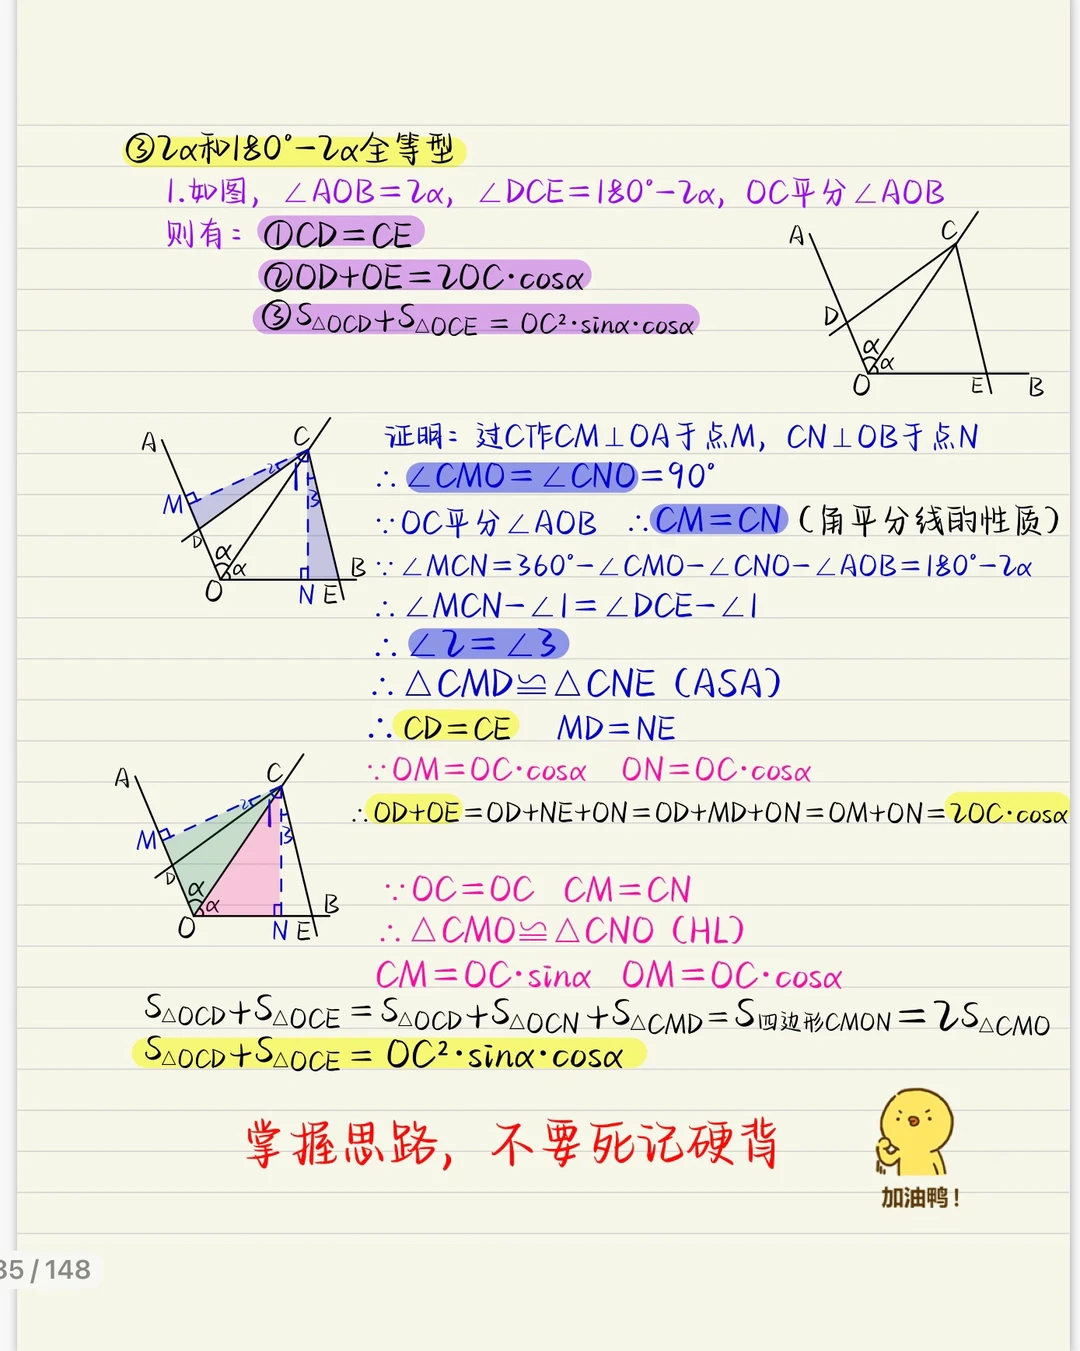 ③2α和180°-2α全等型
1.如图，∠AOB=2α，∠DCE=180°-2α，OC平分∠AOB
则有：①CD=CE
②OD+OE=2OC·cosα
③S△OCD+S△OCE = OC²·sinα·cosα
A
C
D
α
α
O
E
B
A
C
M
2
1
3
D
α
α
O
N
E
B
证明：过C作CM⊥OA于点M，CN⊥OB于点N
∴∠CMO=∠CNO=90°
∵OC平分∠AOB ∴CM=CN（角平分线的性质）
∵∠MCN=360°-∠CMO-∠CNO-∠AOB=180°-2α
∴∠MCN-∠1=∠DCE-∠1
∴∠2=∠3
∴△CMD≌△CNE（ASA）
∴CD=CE MD=NE
∵OM=OC·cosα ON=OC·cosα
∴OD+OE=OD+NE+ON=OD+MD+ON=OM+ON=2OC·cosα
A
C
M
2
1
3
D
α
α
O
N
E
B
∵OC=OC CM=CN
∴△CMO≌△CNO（HL）
CM=OC·sinα OM=OC·cosα
S△OCD+S△OCE=S△OCD+S△OCN+S△CMD=S四边形CMON=2S△CMO
S△OCD+S△OCE = OC²·sinα·cosα
掌握思路，不要死记硬背
加油鸭！
35/148